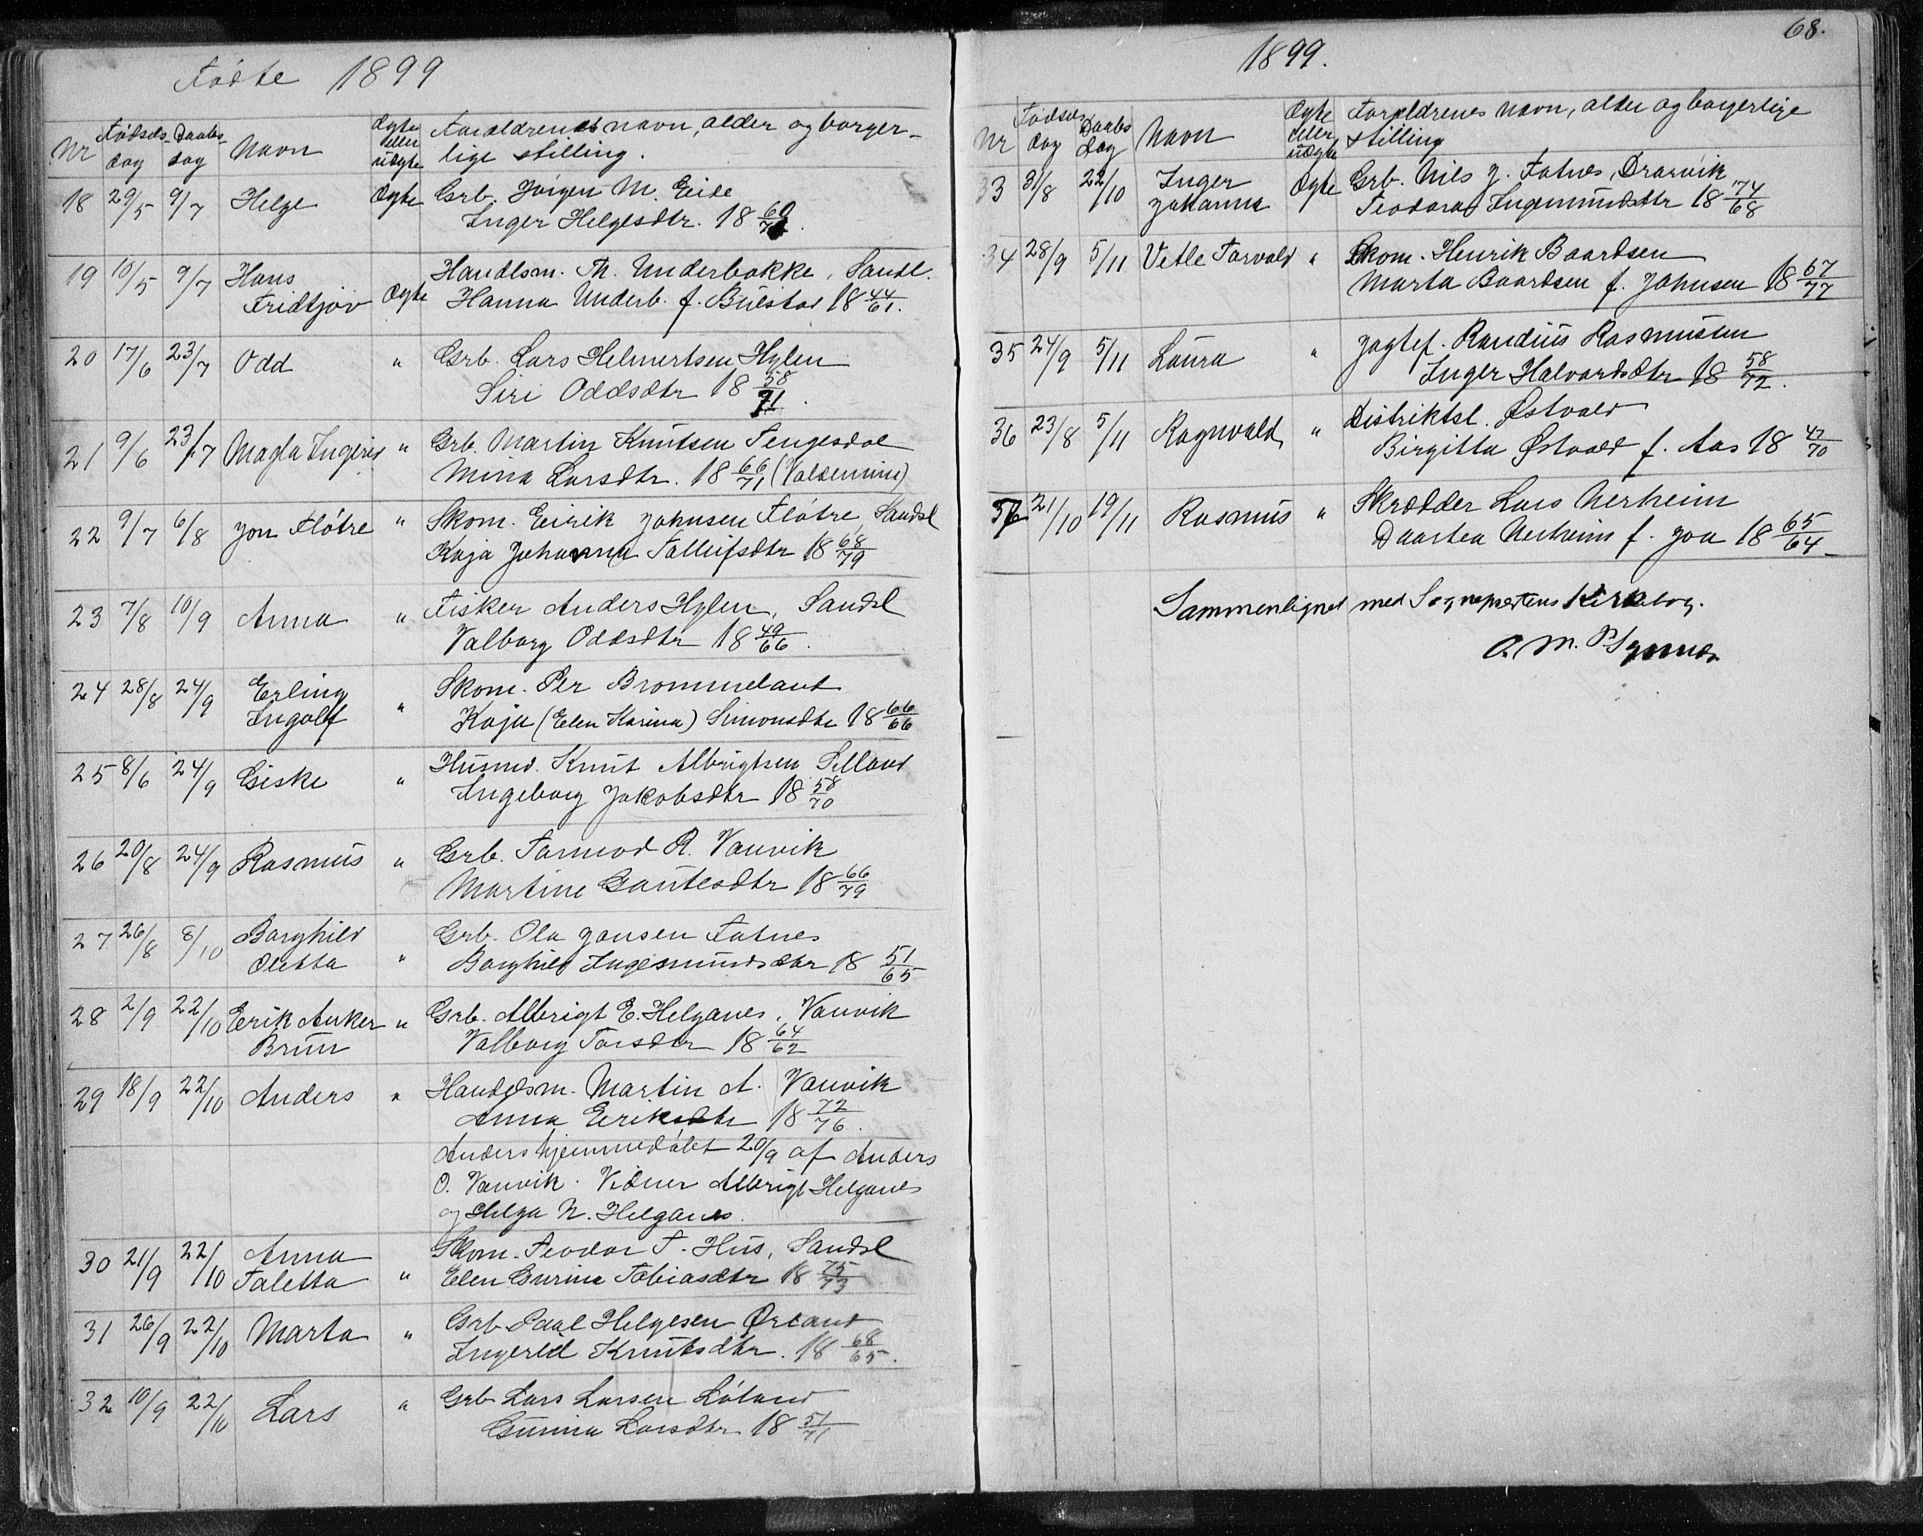 Fødte 1899
Nr Fødsels- dag Daabs- dag Navn Ægte eller uægte Forældrenes navn, alder og borger-
lige stilling.
18 29/5 9/7 Helge Ægte Grb. Jørgen M. Eide
Inger Helgesdtr. 18 60/
19 10/5 9/7 Hans Handlsm. Th. Underbakke, Sandl.
Fridtjov Ægte Hanna Underb. f. Bulstad 18 44/61.
20 17/6 23/7 Odd " Grb. Lars Helmertsen Hylen
Siri Oddsdtr 18 58/71.
21 9/6 23/7 Magla Ingerid " Grb. Martin Knutsen Tengesdal
Mina Larsdtr. 18 66/71 (Valdemine)
22 9/7 6/8 Jon Fløtre " Skom. Eirik Johnsen Fløtre, Sandsl
Kaja Johanna Tolleifsdtr 18 68/79
23 7/8 10/9 Anna " Fisker Anders Hylen, Sandsl
Valborg Oddsdtr 18 49/66.
24 28/8 24/9 Erling Skom. Per Brommeland
Ingolf " Kaja (Elen Karina) Simonsdtr 18 66/66
25 8/6 24/9 Giske " Husmd. Knut Albrigtsen Selland
Ingeborg Jakobsdtr 18 58/70
26 20/8 24/9 Rasmus " Grb. Tormod R. Vanvik
Martine Gautesdtr 18 66/79
27 26/8 8/10 Borghild Grb. Ola Jonsen Fatnes
Oletta " Borghild Ingemundsdtr 18 51/65
28 2/9 22/10 Erik Anker " Grb. Albrigt E. Helganes, Vanvik
Brun Valborg Torsdtr 18 64/62
29 18/9 22/10 Anders " Handelsm. Martin A. Vanvik
Anna Eriksdtr 18 72/76.
Anders hjemmedøbt 20/9 af Anders
O. Vanvik. Vidner Albrigt Helganes
og Helga N. Helganes.
30 21/9 22/10 Anna Skom. Teodor T. Hus, Sandsl
Taletta " Elen Gurine Tobiasdtr 18 75/73
31 26/9 22/10 Marta " Grb. Paal Helgesen Ørland
Ingerid Knutsdtr. 18 68/65.
32 10/9 22/10 Lars " Grb Lars Larsen Løland
Gunna Larsdtr 18 51/71
68.
1899.
Nr Fødsels dag Daabs dag Navn Ægte eller uægte Forældrenes navn, alder og borgerlige
stilling
33 31/8 22/10 Inger Ægte Grb. Nils J. Fatnes, Drarvik
Johanna Teodora Ingemundsdtr 18 74/68
34 28/9 5/11 Vetle Torvald " Skom. Henrik Baardsen
Marta Baardsen f. Johnsen 18 67/77
35 24/9 5/11 Laura " Jagtef. Randius Rasmussen
Inger Halvordsdtr 18 58/72.
36 23/8 5/11 Ragnvald " Distriktsl. Østvold
Birgitta Østvold f. Aas 18 47/70
37 21/10 19/11 Rasmus " Skrædder Lars Nerheim
Daartea Nerheim f. Joa 18 65/64
Sammenlignet med Sogneprestens Kirkebog.
O. M.